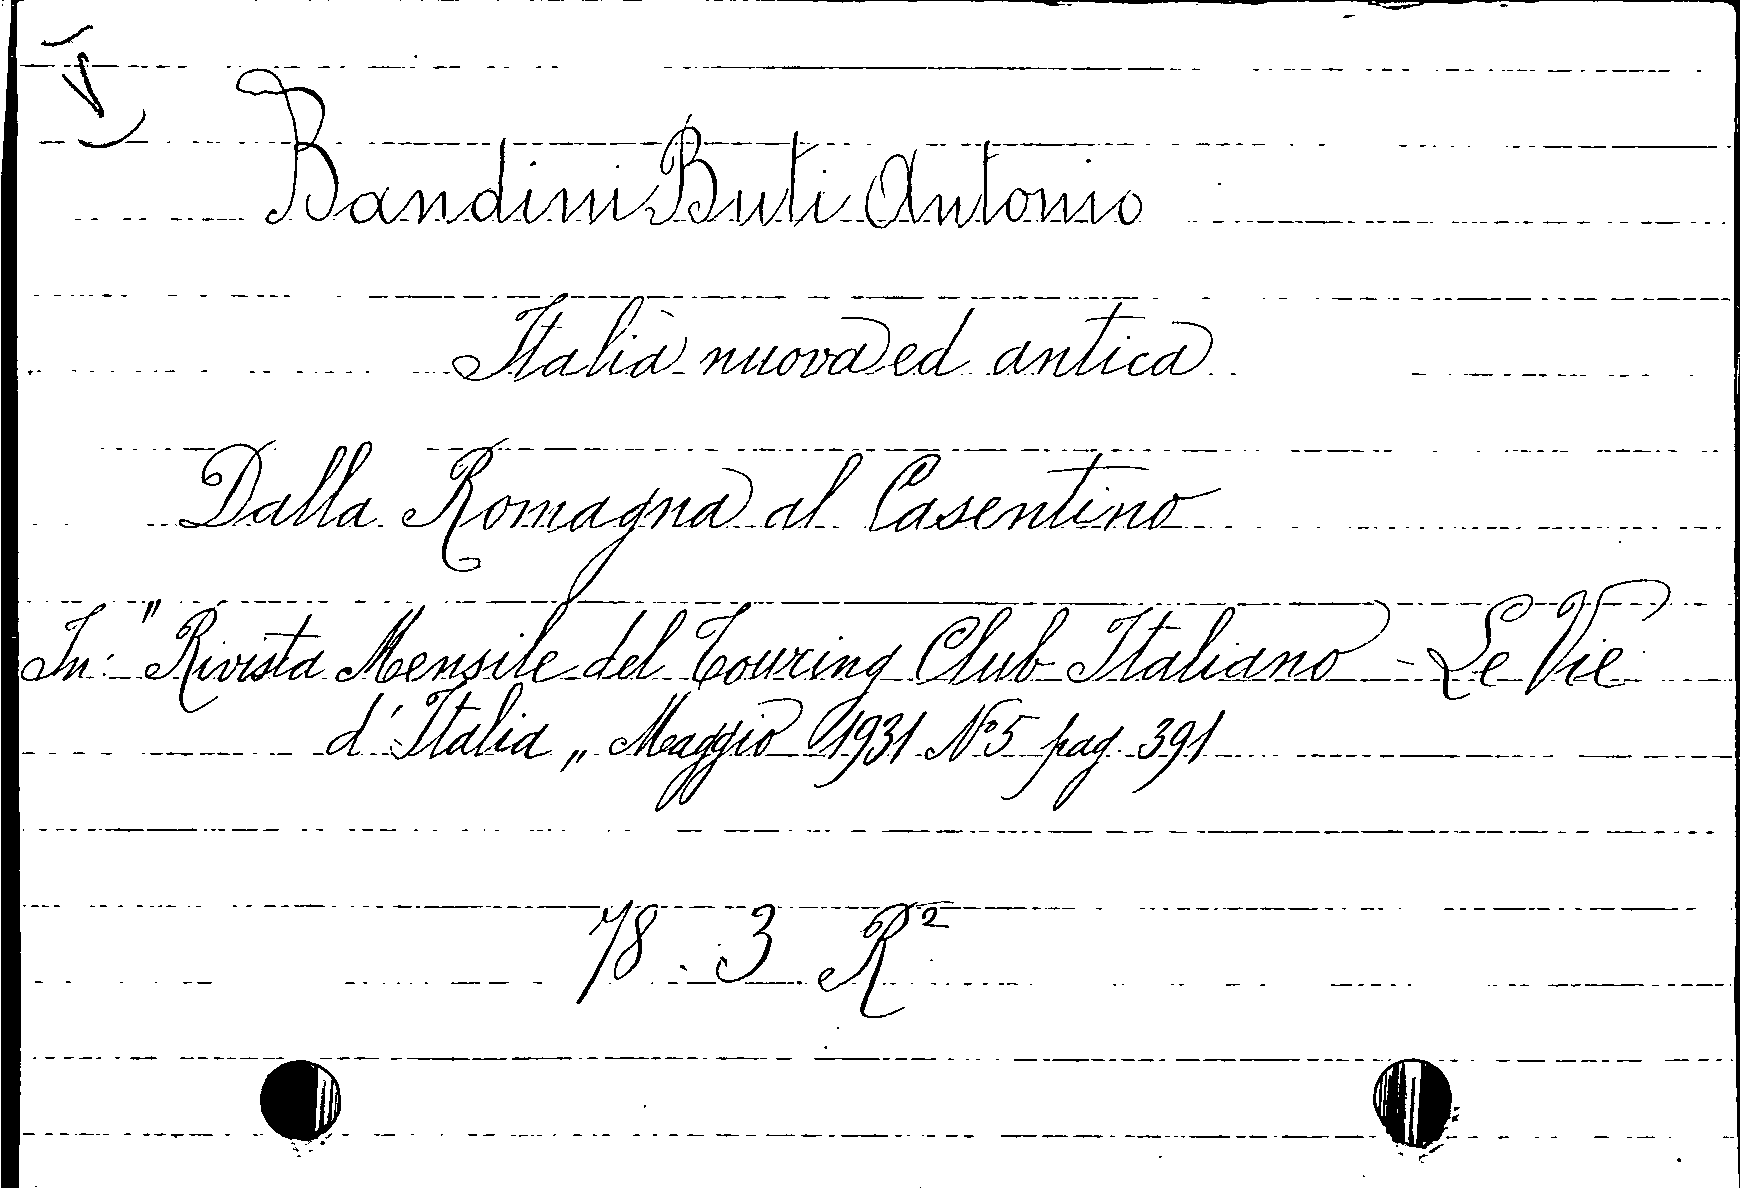 (V)
Bandini Buti Antonio
Italia nuova ed antica
Dalla Romagna al Casentino
In: "Rivista Mensile del Touring Club Italiano - Le Vie
d'Italia„ Maggio 1931 N° 5 pag. 391
78 . 3 R²